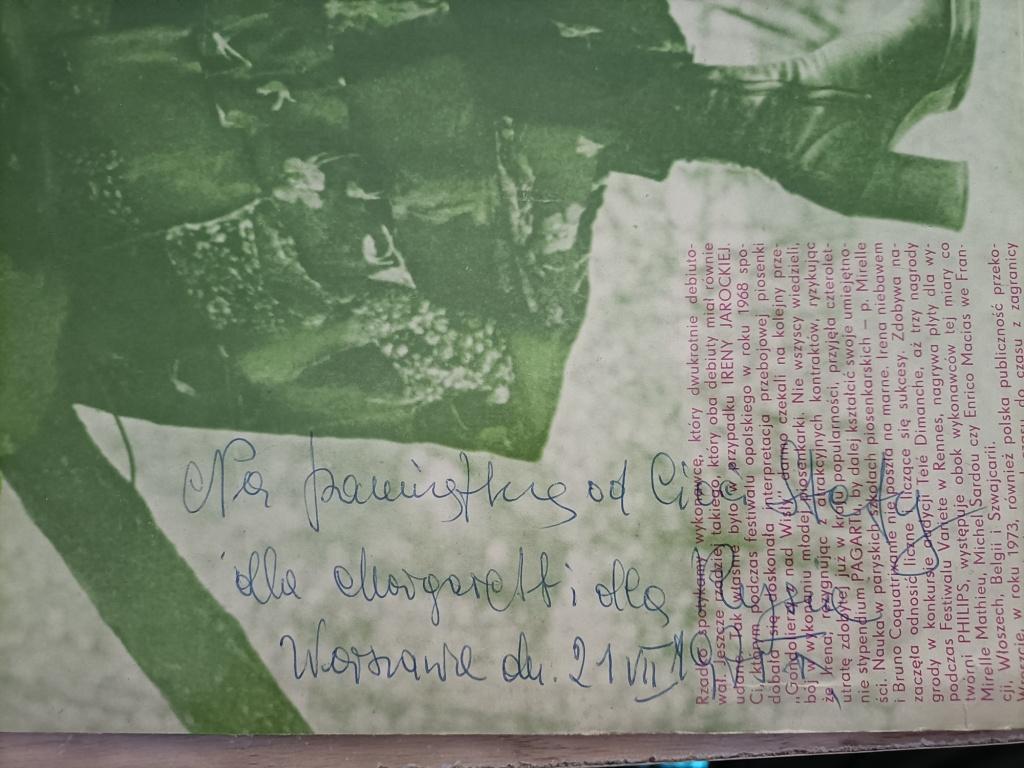 Na pamiątkę od Cioci
dla Margarett i dla
Warszawa dn. 21 VII
Rzadko spotykamy wykonawcę, który dwukrotnie debiuto-
wał. Jeszcze rzadziej takiego, który oba debiuty miał równie
udane. Tak właśnie było w przypadku IRENY JAROCKIEJ.
Ci, którym podczas festiwalu opolskiego w roku 1968 spo-
dobała się doskonała interpretacja przebojowej piosenki
"Gondolierzy nad Wisłą" darmo czekali na kolejny prze-
bój w wykonaniu młodej piosenkarki. Nie wszyscy wiedzieli,
że Irena, rezygnując z atrakcyjnych kontraktów, ryzykując
utratę zdobytej już w kraju popularności, przyjęła czterolet-
nie stypendium PAGARTU by dalej kształcić swoje umiejętno-
ści. Nauka w paryskich szkołach piosenkarskich – p. Mirelle
i Bruno Coquatrix nie poszła na marne. Irena niebawem
zaczęła odnosić liczne i liczące się sukcesy. Zdobywa na-
grody w konkursie Telé Dimanche, aż trzy nagrody
podczas Festiwalu Varieté w Rennes, nagrywa płyty dla wy-
twórni PHILIPS, występuje obok wykonawców tej miary co
Mirelle Mathieu, Michel Sardou czy Enrico Macias we Fran-
cji, Włoszech, Belgii i Szwajcarii.
Wreszcie, w roku 1973, również polska publiczność przeko-
do czasu z zagranicy